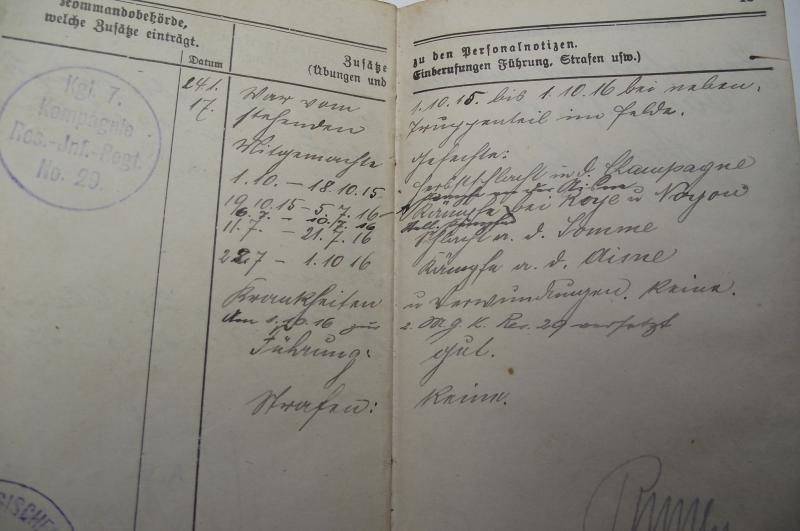 Kommandobehörde,
welche Zusätze einträgt.
Datum
Zusätze
(Übungen und
zu den Personalnotizen.
Einberufungen Führung, Strafen usw.)
Kgl. 7.
Kompagnie
Res.-Inf.-Regt.
No. 29.
24.1.
17.
War vom 1.10.15. bis 1.10.16 bei neben,
stehenden Truppenteil im Felde.
Mitgemachte Gefechte:
1.10. – 18.10.15 Herbstschlacht in d. Champagne
19.10.15 – 5.7.16 – Kämpfe bei Roye u Noyon
6.7. – 10.7.16
11.7. – 21.7.16 Schlacht a. d. Somme
22.7 – 1.10 16 Kämpfe a. d. Aisne
Krankheiten u Verwundungen. Keine.
Am 1.10.16 zur 2. M.G.K. Res. 29 versetzt
Führung: gut.
Strafen: Keine.